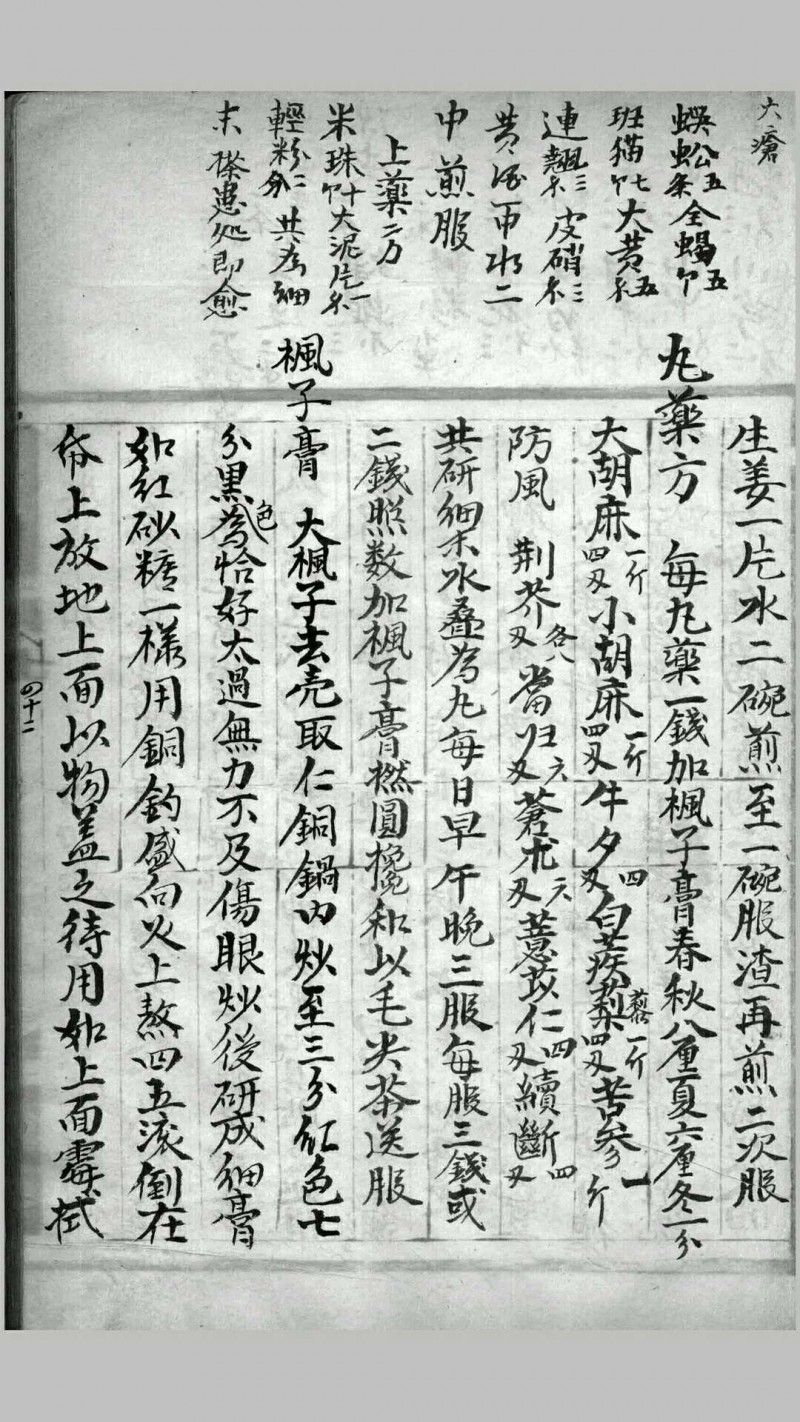 大瘡
蜈蚣五条全蝎五个
班猫七个大黄五
連翹三皮硝三
水二
中煎服
上藥二方
米珠十大泥片一
輕粉二分共為細
末搽患处即愈
生姜一片水二碗煎至一碗服渣再煎二次服
丸藥方 每丸藥一錢加楓子膏春秋八厘夏六厘冬一分
大胡麻一斤四又小胡麻一斤四又牛夕四又白蒺藜一斤四又苦参一斤
防風 荆芥各八又當归六又蒼朮六又薏苡仁四又續斷四又
共研細末水叠為丸每日早午晚三服每服三錢或
二錢照数加楓子膏撚圓攙和以毛尖茶送服
楓子膏 大楓子去壳取仁銅鍋内炒至三分紅色七
分黑色為恰好太過無力不及傷眼炒後研成細膏
如紅砂糖一樣用銅釣盛向火上熬四五滚倒在
帋上放地上面以物盖之待用如上面霉拭
四十二